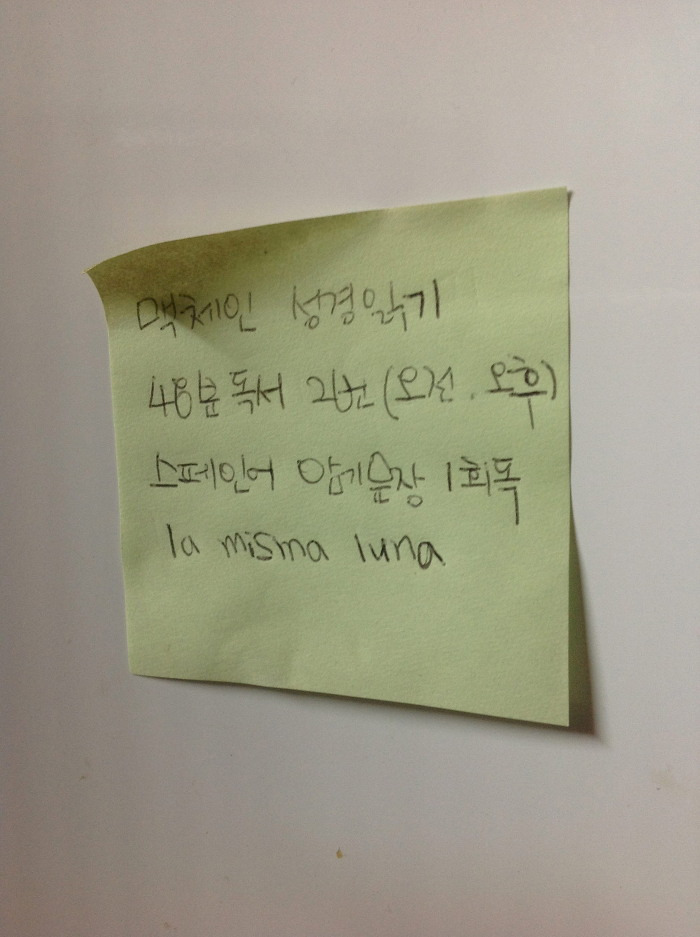 맥체인 성경읽기
48분 독서 2권 (오전. 오후)
스페인어 암기문장 1회독
la misma luna